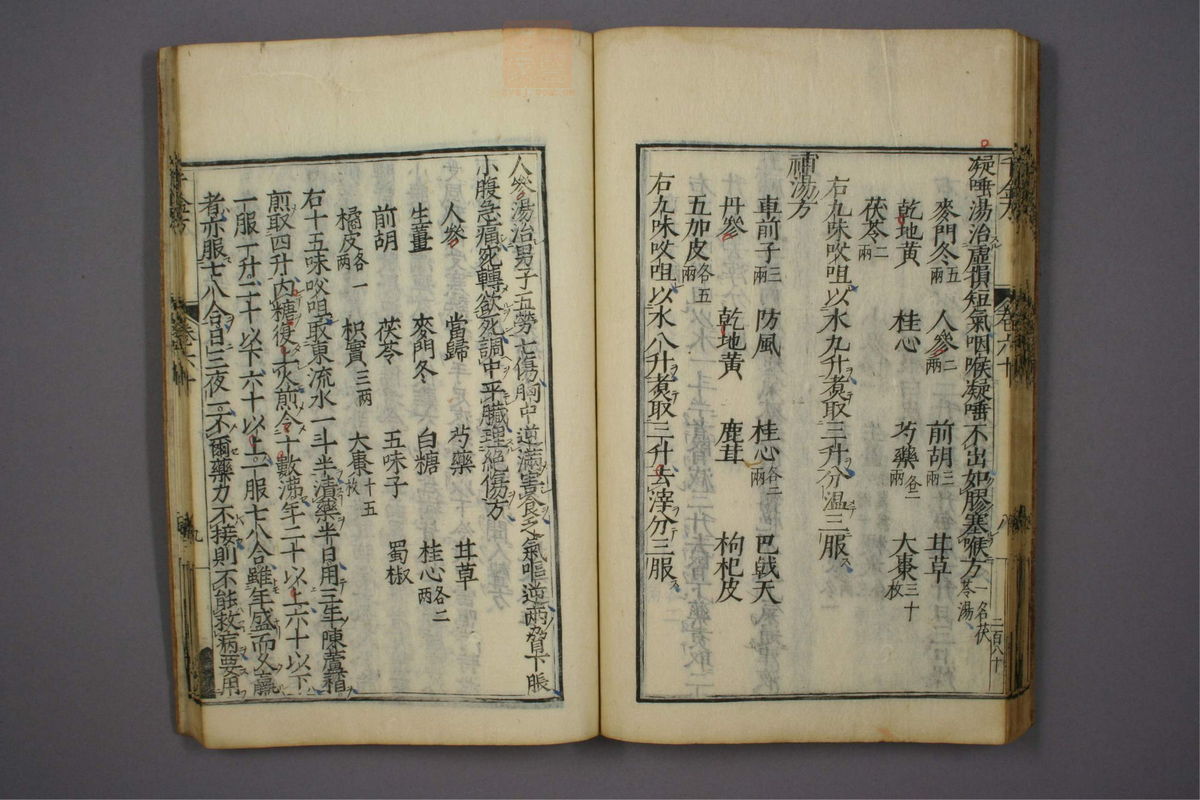 凝唾湯治虛損短氣咽喉凝唾不出如膠塞喉方一名茯苓湯
麥門冬五兩 人參二兩 前胡三兩 甘草
乾地黃 桂心 芍藥各一兩 大棗三十枚
茯苓二兩
右九味㕮咀以水九升煮取三升分溫三服
補湯方
車前子三兩 防風 桂心各二兩 巴戟天
丹參 乾地黃 鹿茸 枸杞皮
五加皮各五兩
右九味㕮咀以水八升煮取三升去滓分三服
人參湯治男子五勞七傷胸中逆滿害食乏氣嘔逆兩脅下脹
小腹急痛宛轉欲死調中平臟理絕傷方
人參 當歸 芍藥 甘草
生薑 麥門冬 白糖 桂心各二兩
前胡 茯苓 五味子 蜀椒
橘皮各一兩 枳實三兩 大棗十五枚
右十五味㕮咀取東流水一斗半漬藥半日用三年陳蘆稍
煎取四升內糖復上火煎令十數沸年二十以上六十以下
一服一升二十以下六十以上一服七八合雖年盛而久羸
者亦服七八合日三夜一不爾藥力不接則不能救病要用